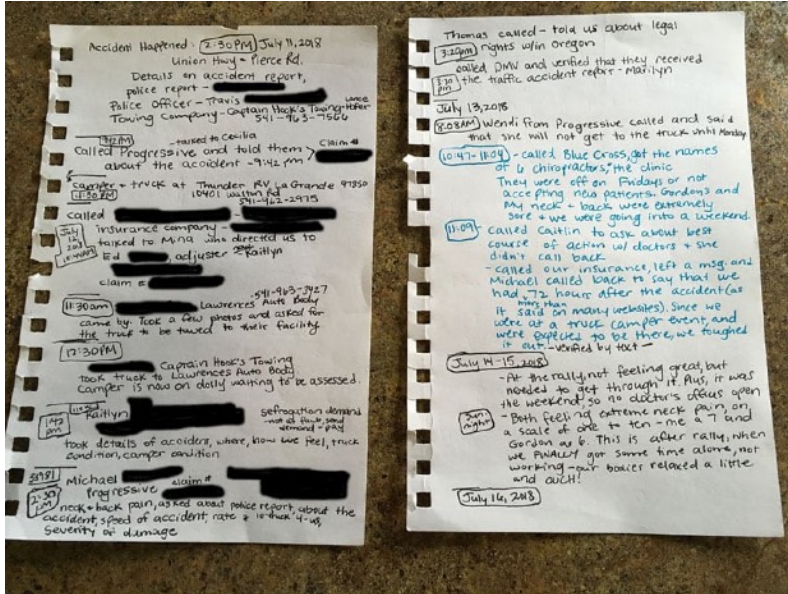 Accident Happened: 2:30PM July 11, 2018
Union Hwy + Pierce Rd.
Details on accident report,
police report -
Police Officer - Travis
Towing Company - Captain Hook's Towing -
541-963-7566
- talked to Cecilia
Called Progressive and told them
about the accident - 9:42 pm
Claim #
Camper + truck at Thunder RV La Grande 97850
10401 Walton Rd
541-962-2975
called
insurance company -
July 12, 2018
talked to Mina who directed us to
Ed , adjuster Kaitlyn
claim #
541-963-
11:30am Lawrences Auto Body
came by. Took a few photos and asked for
the truck to be towed to their facility
12:30PM
Captain Hook's Towing
took truck to Lawrences Auto Body
Camper is now on dolly waiting to be assessed.
Kaitlyn
1:42 pm
demand
- not at fault, send
demand - pay
took details of accident, where, how we feel, truck
condition, camper condition
Michael claim #
Progressive
2:30 PM
neck + back pain, asked about police report, about the
accident, speed of accident, rate
severity of damage
Thomas called - told us about legal
3:20pm rights w/in Oregon
called DMV and verified that they received
the traffic accident report - Marilyn
July 13, 2018
8:08AM Wendi from Progressive called and said
that she will not get to the truck until Monday
10:47-11:04 - called Blue Cross, got the names
of 6 chiropractors, the clinic
They were off on Fridays or not
accepting new patients. Gordon's and
My neck + back were extremely
sore + we were going into a weekend.
11:09 - called Caitlin to ask about best
course of action w/ doctors + she
didn't call back
- called our insurance, left a msg. and
Michael called back to say that we
had 72 hours after the accident (as
more than
it said on many websites). Since we
were at a truck camper event, and
were expected to be there, we toughed
it out. - verified by text -
July 14-15, 2018
- At the rally, not feeling great, but
needed to get through it. Plus, it was
the weekend, so no doctor's offices open
Sun. night
- Both feeling extreme neck pain, on
a scale of one to ten - me a 7 and
Gordon a 6. This is after rally, when
we FINALLY got some time alone, not
working - our bodies relaxed a little
and ouch!
July 16, 2018